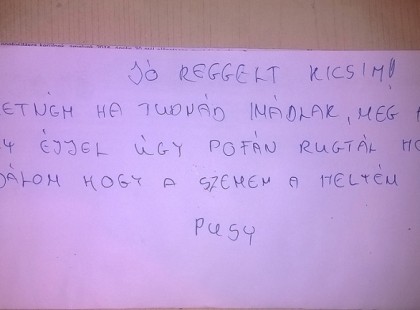 JÓ REGGELT KICSIM!
ETNÉM HA TUDNÁD IMÁDLAK, MEG
ÉJJEL ÚGY POFÁN RUGTÁL HO
ÁLOM HOGY A SZEMEM A HELYÉN
PUSY